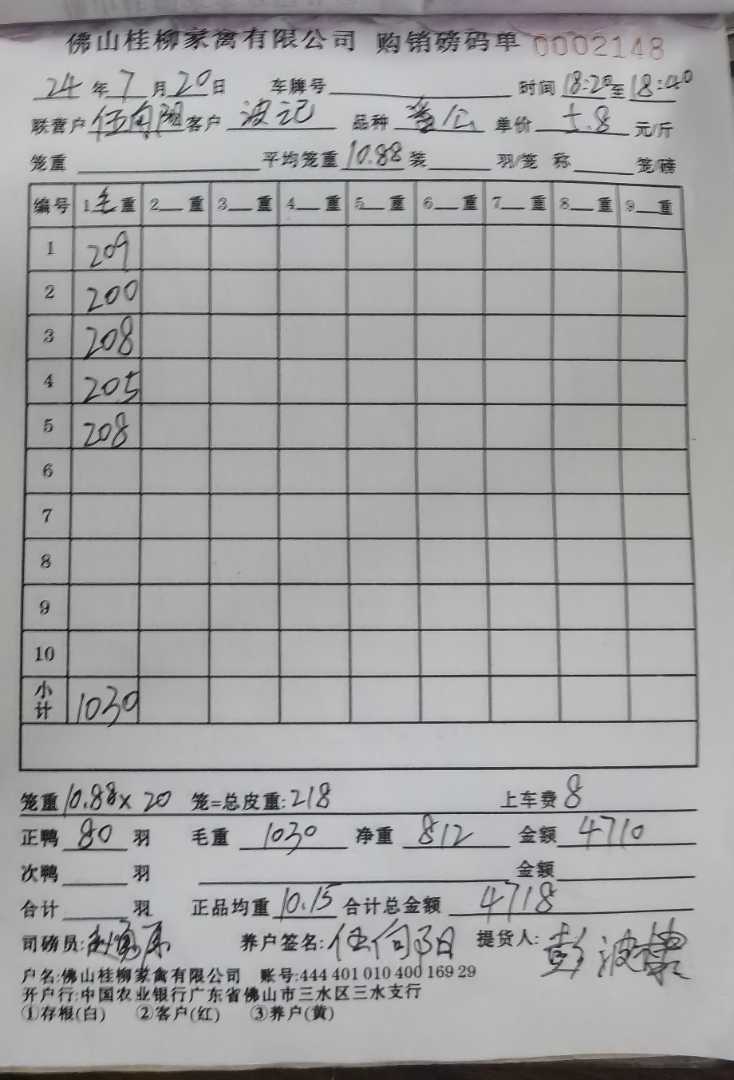 佛山桂柳家禽有限公司 购销磅码单 0002148
24年7月20日 车牌号 时间18:20至18:40
联营户伍向阳客户 波记 品种 公 单价 5.8 元/斤
笼重 平均笼重10.88装 羽/笼 称 笼/磅
编号 1毛重 2 重 3 重 4 重 5 重 6 重 7 重 8 重 9 重
1 209
2 200
3 208
4 205
5 208
6
7
8
9
10
小计 1030
笼重10.88×20 笼=总皮重:218 上车费8
正鸭 80 羽 毛重 1030 净重 812 金额 4710
次鸭 羽 金额
合计 羽 正品均重 10.15 合计总金额 4718
司磅员: 养户签名:伍向阳 提货人:彭波
户名:佛山桂柳家禽有限公司 账号:444 401 010 400 169 29
开户行:中国农业银行广东省佛山市三水区三水支行
①存根(白) ②客户(红) ③养户(黄)